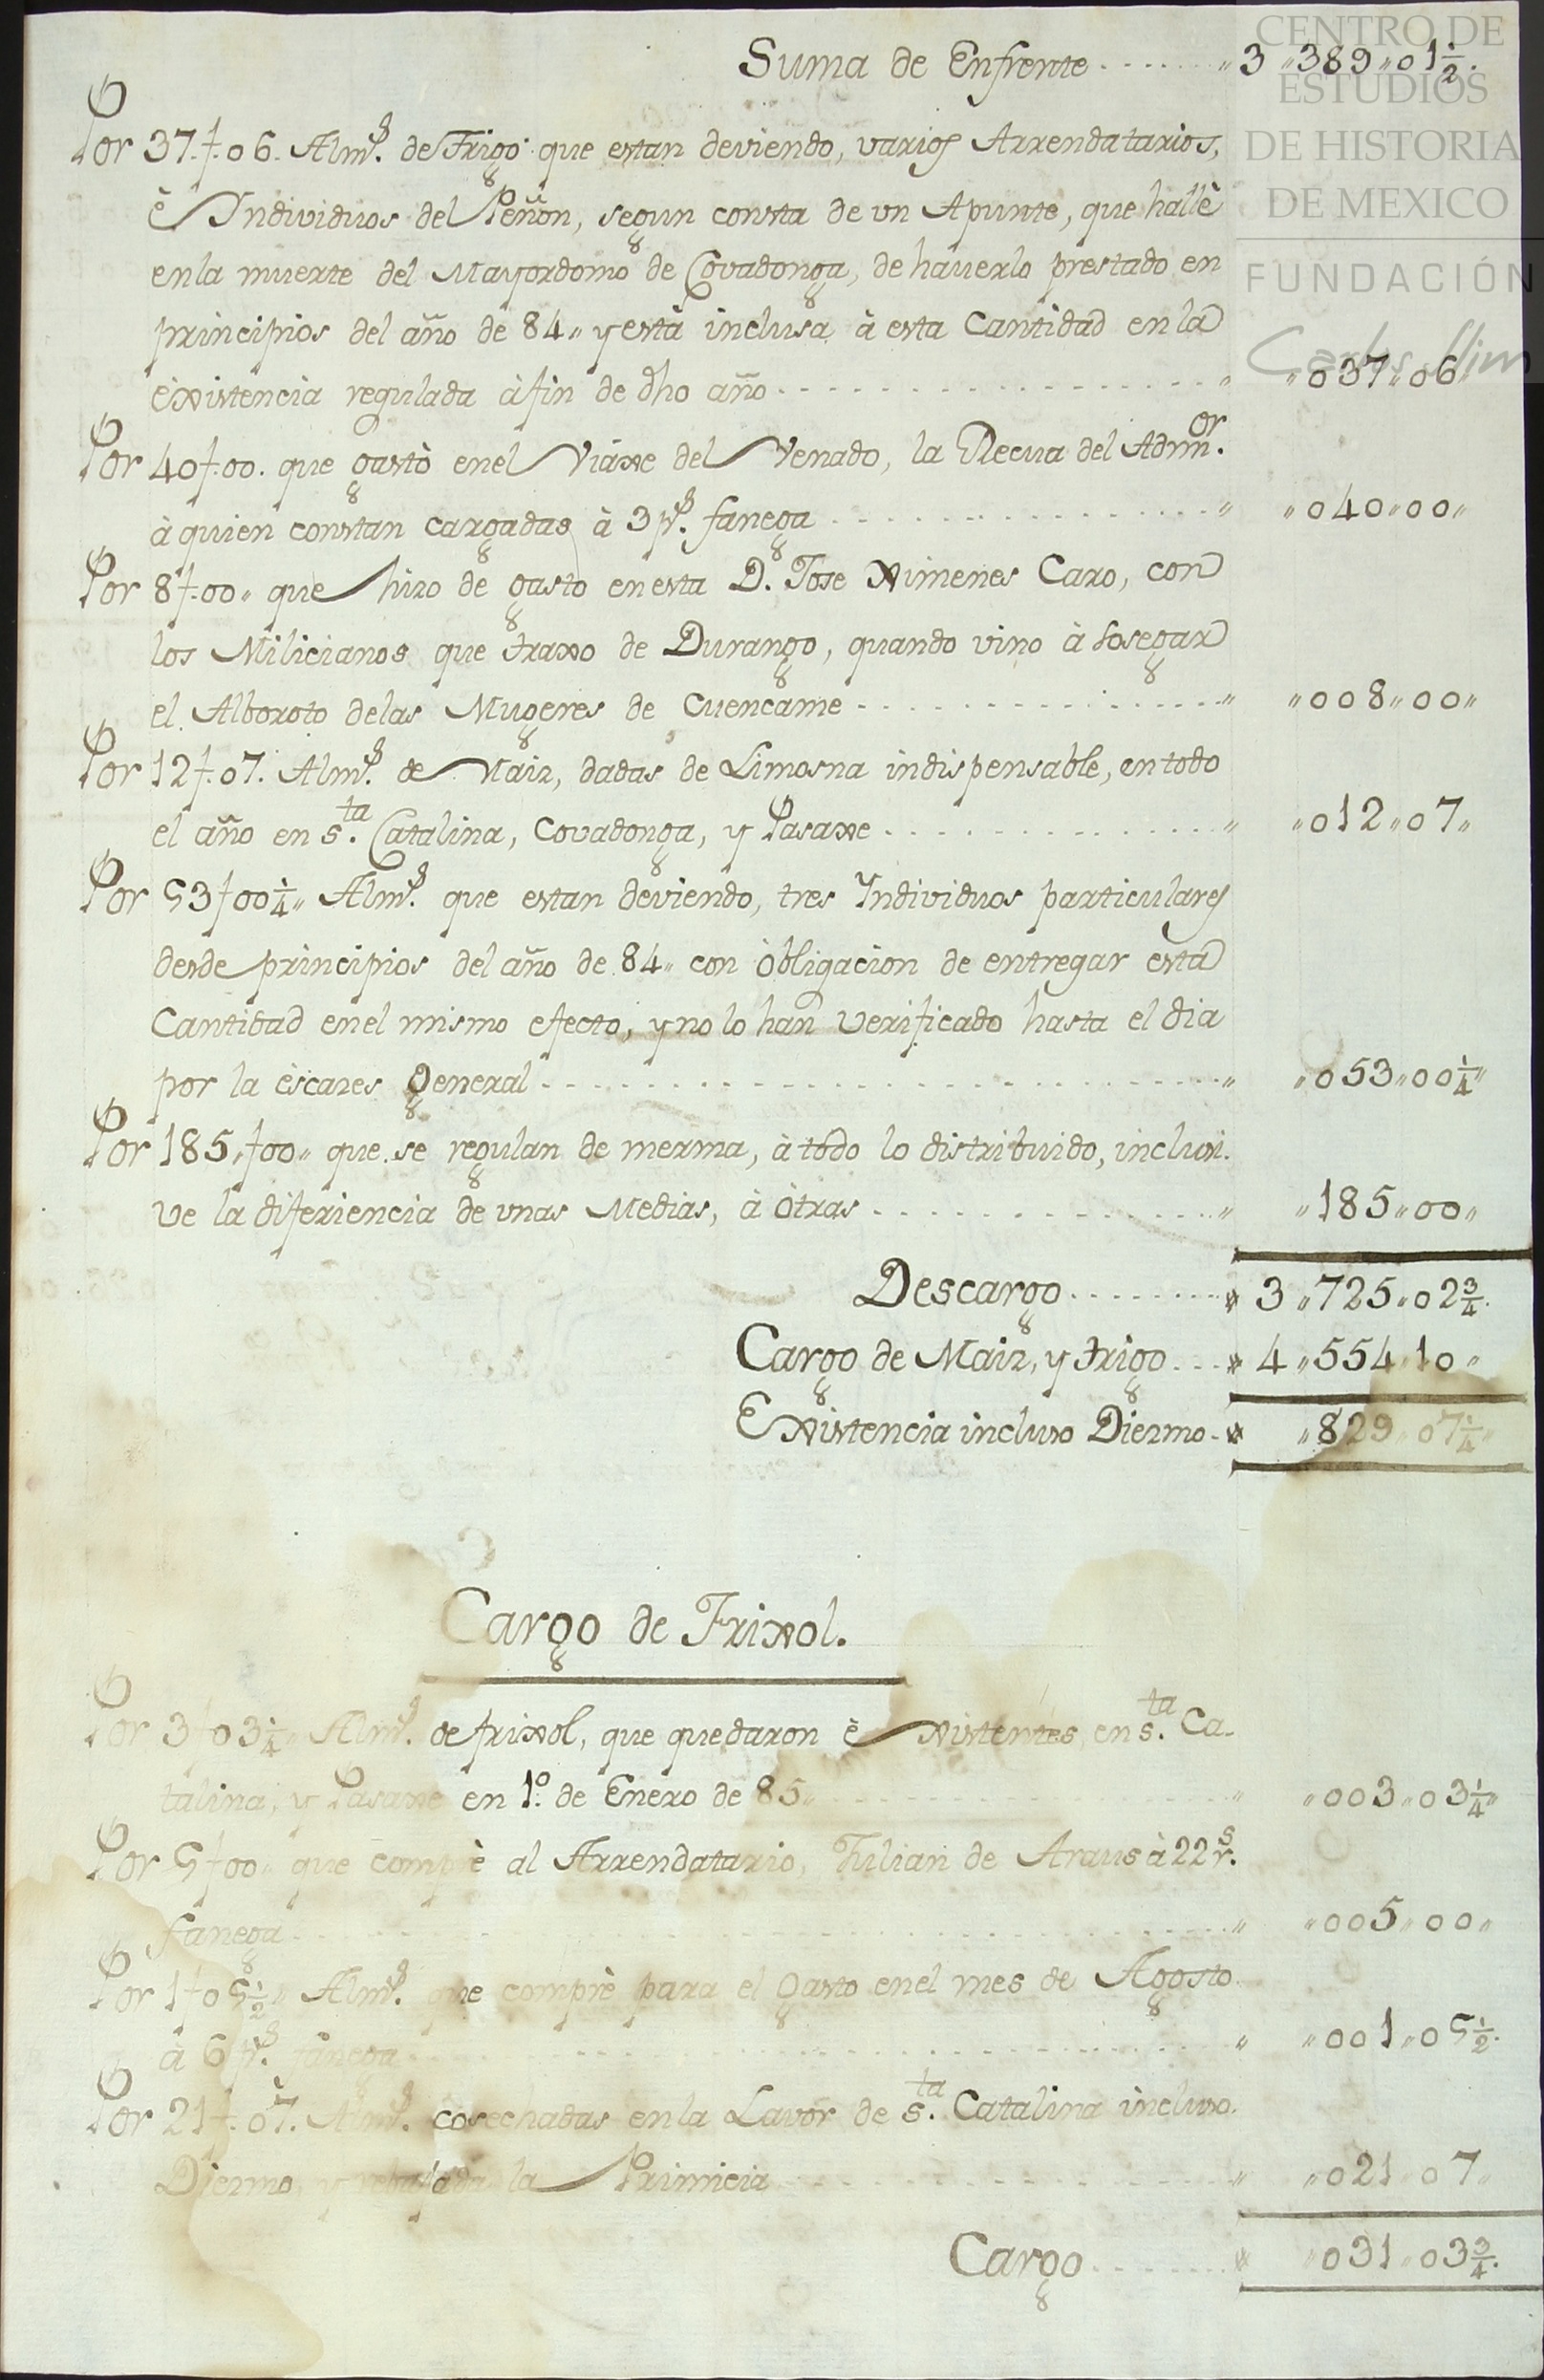 CENTRO DE
ESTUDIOS
DE HISTORIA
DE MEXICO
FUNDACIÓN
Carlos Slim
Suma de Enfrente . . . . . . „ 3 „ 389 „ 01½.
Por 37.f. 06. Alm.s de Trigo que estan deviendo, varios Arrendatarios,
è Individuos del Peñon, segun consta de vn Apunte, que hallè
en la muerte del Mayordomo de Covadonga, de hauerlo prestado en
principios del año de 84 „ y està inclusa à esta Cantidad en la
èxistencia regulada à fin de dho año . . . „ „ 037 „ 06 „
Por 40 f. 00. que gastò en el Viàxe del Venado, la Recua del Adm.or
à quien constan cargadas à 3 p.s fanega . . . „ „ 040 „ 00 „
Por 8 f. 00 „ que hizo de gasto en esta D. Jose Ximenes Caro, con
los Milicianos que traxo de Durango, quando vino à sosegar
el Alboroto de las Mugeres de Cuencame . . . „ „ 008 „ 00 „
Por 12 f. 07. Alm.s de Maiz, dadas de Limosna indispensable, en todo
el año en S.ta Catalina, Covadonga, y Pasaxe . . . „ „ 012 „ 07 „
Por 53 f 00¼ „ Alm.s que estan deviendo, tres Yndividuos particulares
desde principios del año de 84 „ con òbligacion de entregar esta
Cantidad en el mismo efecto, y no lo han verificado hasta el dia
por la èscares general . . . „ „ 053 „ 00¼ „
Por 185 „ f 00 „ que se regulan de merma, à todo lo distribuido, inclusi.
ve la diferiencia de vnas Medias, à òtras . . . „ „ 185 „ 00 „
Descargo . . . „ 3 „ 725 „ 02¾.
Cargo de Maiz, y trigo . . . „ 4 „ 554 „ 10 „
Existencia incluso Diezmo . „ „ 829 „ 07¼ „
Cargo de Frixol.
Por 3 f 03¼ „ Alm.s de frixol, que quedaron èxistentes, en S.ta Ca-
talina, y Pasaxe en 1.o de Enero de 85 „ . . . „ „ 003 „ 03¼ „
Por 5 f 00 „ que comprè al Arrendatario, Julian de Araus à 22 r.s
fanega . . . „ „ 005 „ 00 „
Por 1 f 05½ „ Alm.s que comprè para el gasto en el mes de Agosto
à 6 p.s fanega . . . „ „ 001 „ 05½.
Por 21 f. 07. Alm.s cosechadas en la Lavor de S.ta Catalina incluso.
Diezmo, y rebajada la Primicia . . . „ „ 021 „ 07 „
Cargo . . . „ „ 031 „ 03¾.